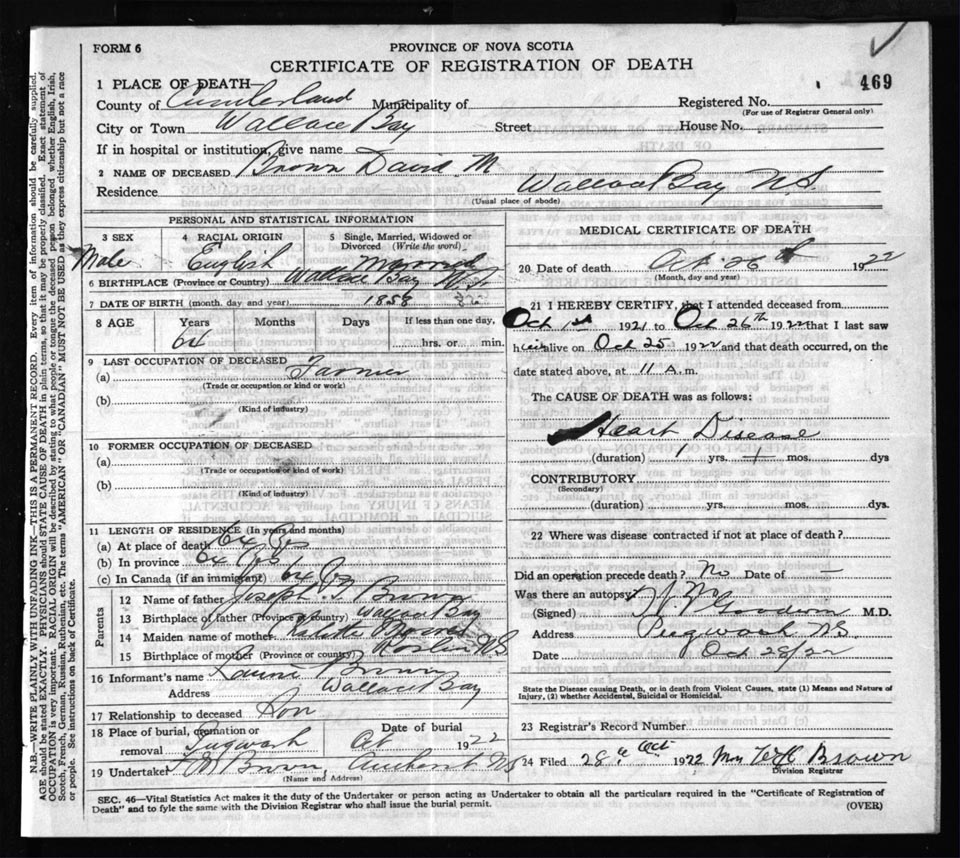 FORM 6
PROVINCE OF NOVA SCOTIA
CERTIFICATE OF REGISTRATION OF DEATH
469
1 PLACE OF DEATH
County of Cumberland Municipality of Registered No.
(For use of Registrar General only)
City or Town Wallace Bay Street House No.
If in hospital or institution, give name
2 NAME OF DECEASED Brown David M.
Residence Wallace Bay NS
(Usual place of abode)
PERSONAL AND STATISTICAL INFORMATION
3 SEX 4 RACIAL ORIGIN 5 Single, Married, Widowed or
Divorced (Write the word)
Male English Married
6 BIRTHPLACE (Province or Country) Wallace Bay N.S.
7 DATE OF BIRTH (month, day and year) 1858
8 AGE Years Months Days If less than one day,
64 hrs. or min.
9 LAST OCCUPATION OF DECEASED
(a) Farmer
(Trade or occupation or kind or work)
(b)
(Kind of industry)
10 FORMER OCCUPATION OF DECEASED
(a)
(Trade or occupation or kind of work)
(b)
(Kind of industry)
11 LENGTH OF RESIDENCE (In years and months)
(a) At place of death 64 yrs
(b) In province 64 yrs
(c) In Canada (if an immigrant) 64 yrs
Parents
12 Name of father Joseph Brown
13 Birthplace of father (Province or country) Wallace Bay
14 Maiden name of mother
15 Birthplace of mother (Province or country) Roslin NS
16 Informant's name Brown
Address Wallace Bay
17 Relationship to deceased Son
18 Place of burial, cremation or Date of burial
removal Pugwash Oct 1922
19 Undertaker Brown, Amherst NS
(Name and Address)
MEDICAL CERTIFICATE OF DEATH
20 Date of death Oct 26 1922
(Month, day and year)
21 I HEREBY CERTIFY, that I attended deceased from
Oct 1st 1921 to Oct 26th 1922 that I last saw
him alive on Oct 25 1922 and that death occurred, on the
date stated above, at 11 A.m.
The CAUSE OF DEATH was as follows:
Heart Disease
(duration) 1 yrs. 1 mos. dys
CONTRIBUTORY
(Secondary)
(duration) yrs. mos. dys.
22 Where was disease contracted if not at place of death?
Did an operation precede death? No Date of —
Was there an autopsy? No
(Signed) Goodwin M.D.
Address Pugwash NS
Date Oct 28/22
State the Disease causing Death, or in death from Violent Causes, state (1) Means and Nature of
Injury, (2) whether Accidental, Suicidal or Homicidal.
23 Registrar's Record Number
24 Filed 28th Oct 1922 Brown
Division Registrar
SEC. 46—Vital Statistics Act makes it the duty of the Undertaker or person acting as Undertaker to obtain all the particulars required in the "Certificate of Registration of
Death" and to fyle the same with the Division Registrar who shall issue the burial permit.
(OVER)
N.B.—WRITE PLAINLY WITH UNFADING INK—THIS IS A PERMANENT RECORD. Every item of information should be carefully supplied.
AGE should be stated EXACTLY. PHYSICIANS should STATE CAUSE OF DEATH in plain terms, so that it may be properly classified. Exact statement of
OCCUPATION is very important. RACIAL ORIGIN will be described by stating to what people or tongue the deceased person belonged whether English, Irish,
Scotch, French, German, Russian, Ruthenian, etc. The terms "AMERICAN" or "CANADIAN" MUST NOT BE USED as they express citizenship but not a race
or people. See instructions on back of Certificate.